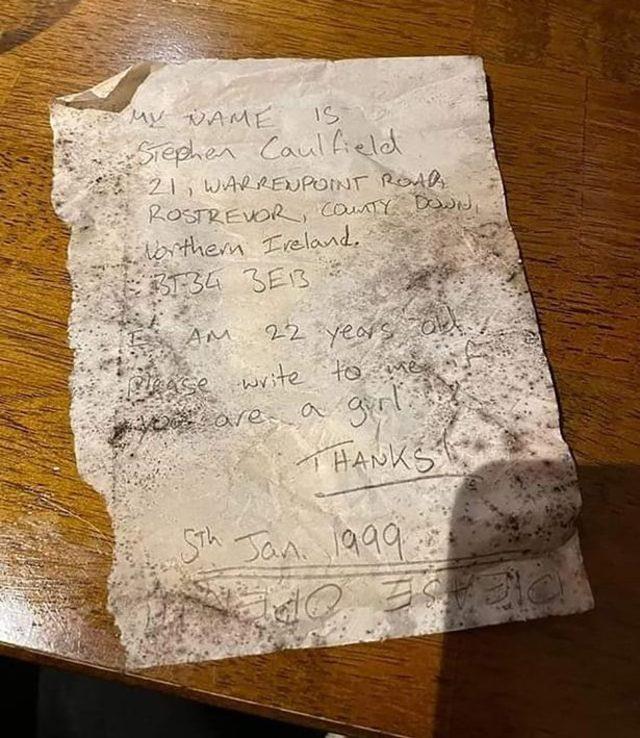 MY NAME IS
Stephen Caulfield
21, WARRENPOINT ROAD,
ROSTREVOR, COUNTY DOWN,
Northern Ireland.
BT34 3EB
I AM 22 years old.
Please write to me if
you are a girl.
THANKS!
5th Jan. 1999
PLEASE OPEN